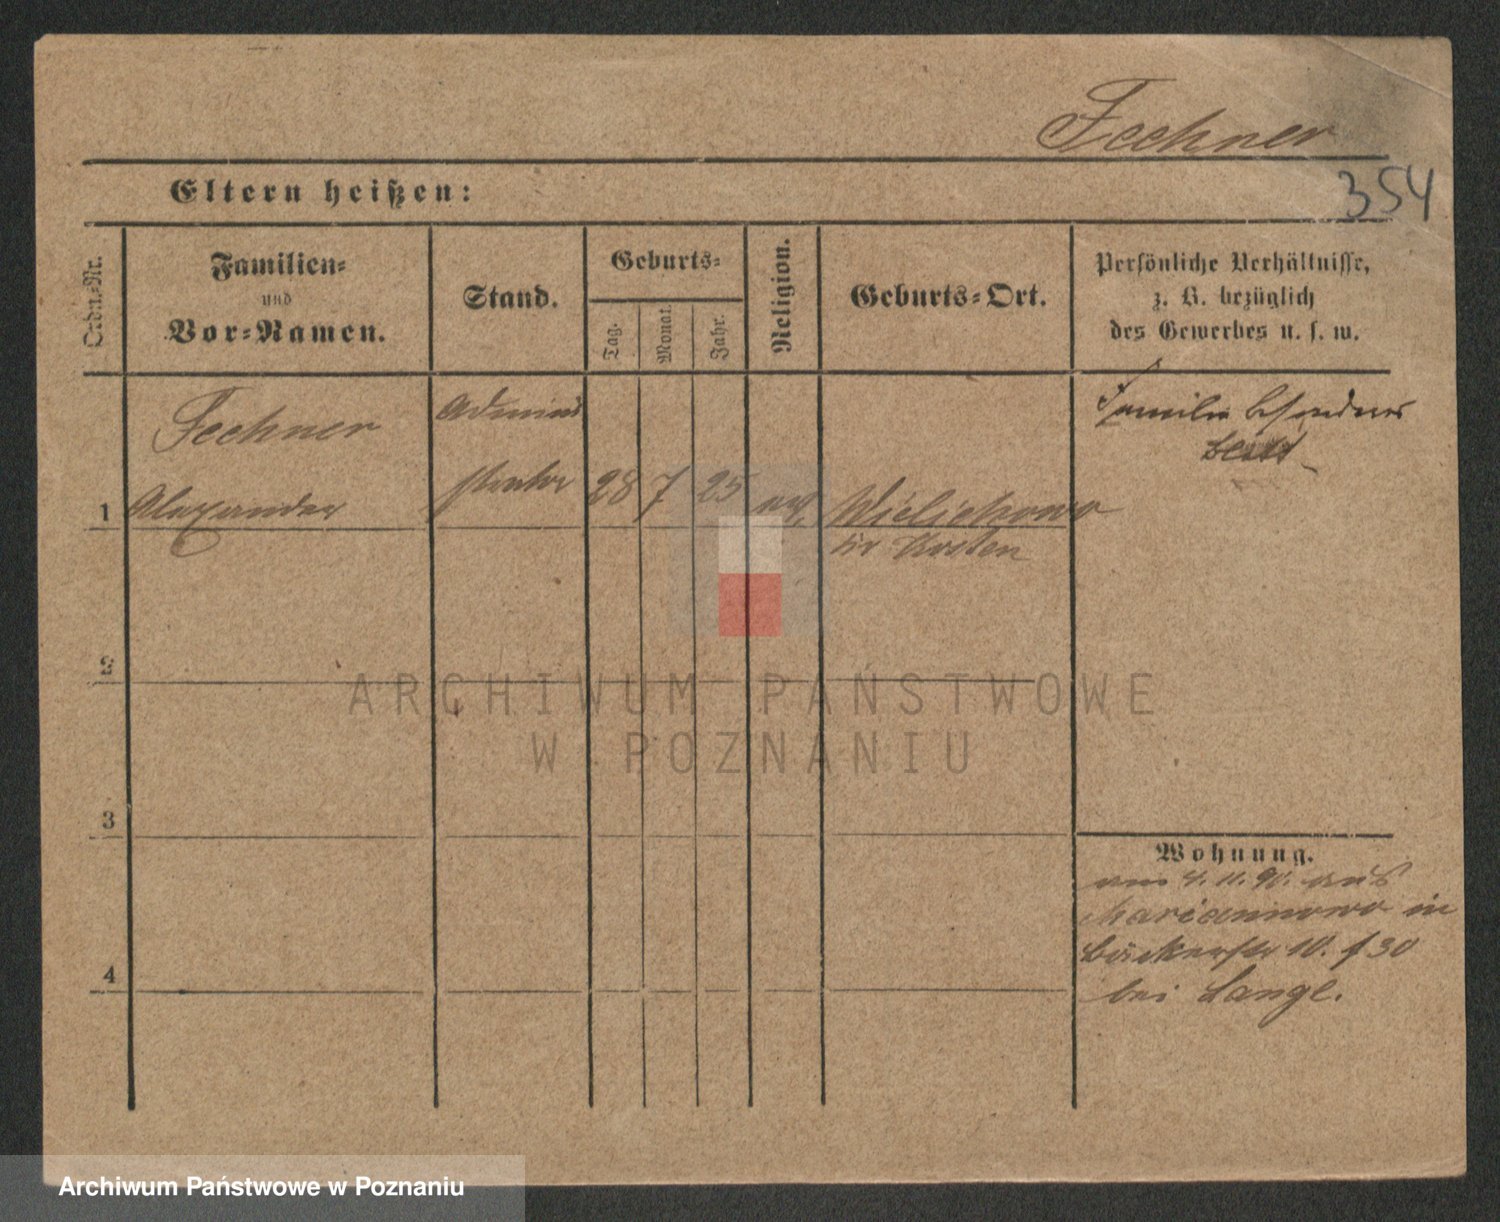 Fechner
354
Eltern heißen:
Ordn.-Nr.
Familien-
und
Vor-Namen.
Stand.
Geburts-
Tag.
Monat.
Jahr.
Religion.
Geburts-Ort.
Persönliche Verhältnisse,
z. B. bezüglich
des Gewerbes u. s. w.
Fechner
Admini
Familie besonderes
Blatt
1 Alexander
strator 28 7 25 ev. Wielichowo
Kr Kosten
2
ARCHIWUM PAŃSTWOWE
W POZNANIU
3
Wohnung.
am 4. 11. 90. aus
Mariannowo in
Bäckerstr 10. f 30
4
bei Lange.
Archiwum Państwowe w Poznaniu